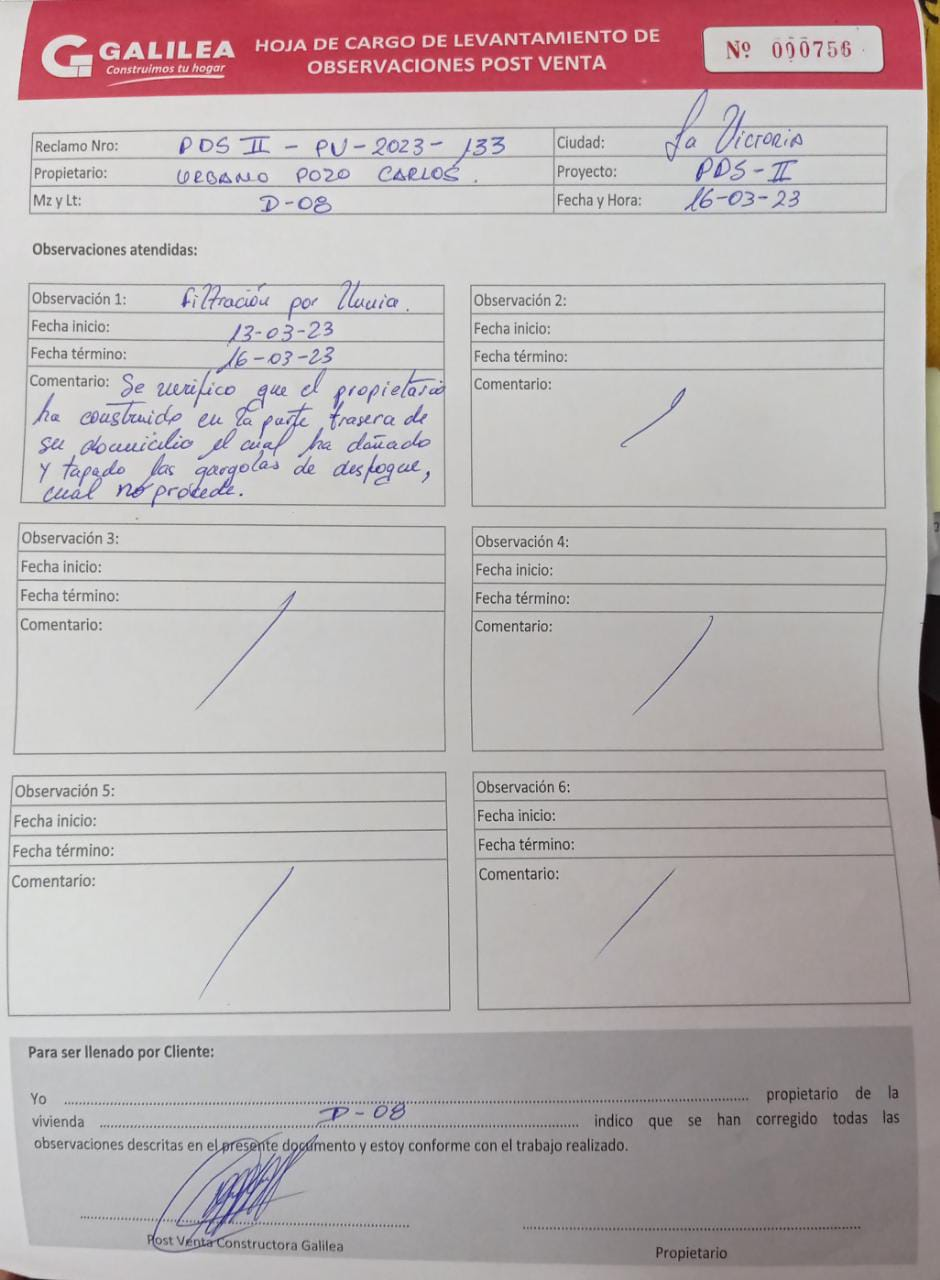 GALILEA
Construimos tu hogar
HOJA DE CARGO DE LEVANTAMIENTO DE
OBSERVACIONES POST VENTA
Nº 000756
Reclamo Nro: PDS II - PV-2023- 133
Ciudad: La Victoria
Propietario: URBANO POZO CARLOS.
Proyecto: PDS-II
Mz y Lt: D-08
Fecha y Hora: 16-03-23
Observaciones atendidas:
Observación 1: Filtración por lluvia.
Fecha inicio: 13-03-23
Fecha término: 16-03-23
Comentario: Se verifico que el propietario
ha construido en la parte trasera de
su domicilio el cual ha dañado
y tapado las gargolas de desfogue,
cual no procede.
Observación 2:
Fecha inicio:
Fecha término:
Comentario:
Observación 3:
Fecha inicio:
Fecha término:
Comentario:
Observación 4:
Fecha inicio:
Fecha término:
Comentario:
Observación 5:
Fecha inicio:
Fecha término:
Comentario:
Observación 6:
Fecha inicio:
Fecha término:
Comentario:
Para ser llenado por Cliente:
Yo ........ propietario de la
vivienda ........ D-08 ........ indico que se han corregido todas las
observaciones descritas en el presente documento y estoy conforme con el trabajo realizado.
Post Venta Constructora Galilea
Propietario